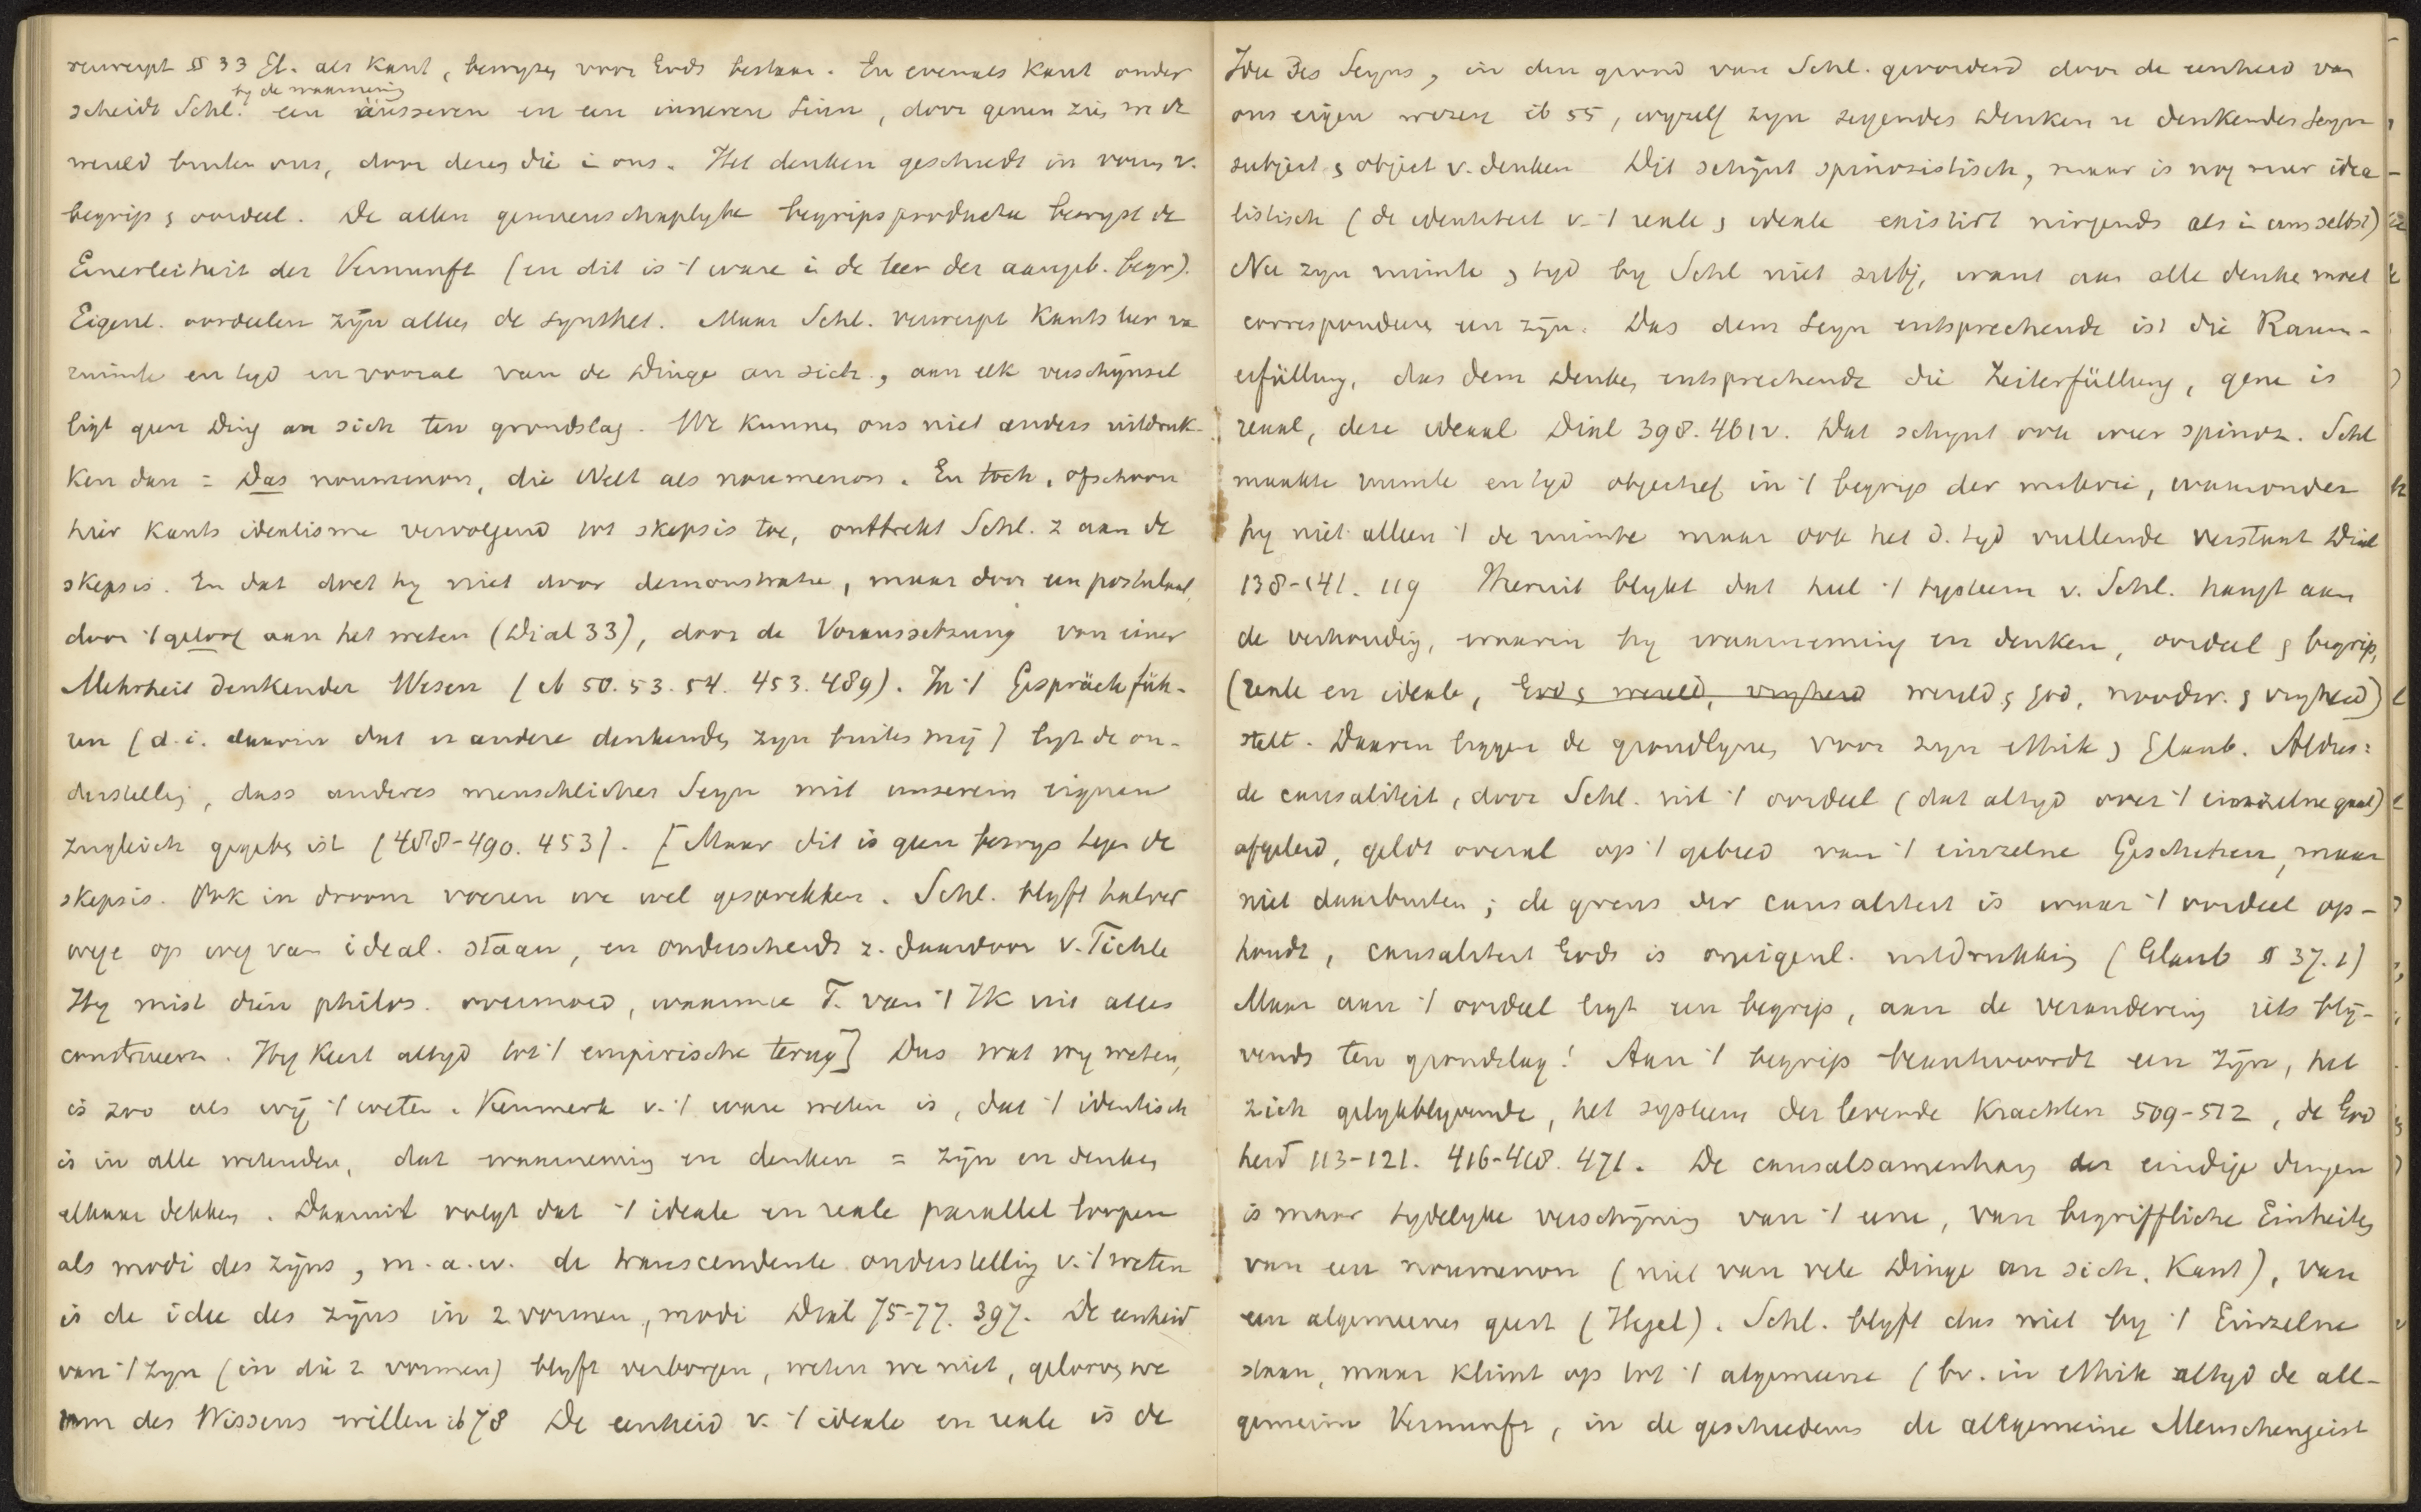 verwerpt § 33 Gl. als Kant, bewijzen voor Gods bestaan. En evenals Kant onder
by de waarneming
scheidt Schl. een äusseren en een inneren Sinn, door genen zien we de
wereld buiten ons, door dezen die in ons. Het denken geschiedt in vorm v.
begrip & oordeel. De allen gemeenschaplyke begripsproductie bewyst de
Einerleiheit der Vernunft (en dit is 't ware in de leer der aangeb. begr).
Eigenl. oordeelen zijn alleen de synthet. Maar Schl. verwerpt Kants leer va
ruimte en tyd en vooral van de Dinge an sich, aan elk verschijnsel
ligt geen Ding an sich ten grondslag. We kunnen ons niet anders uitdruk-
ken dan = Das noumenon, die Welt als noumenon. En toch, ofschoon
hier Kants idealisme vervolgend tot skepsis toe, onttrekt Schl. z aan de
skepsis. En dat doet hy niet door demonstratie, maar door een postulaat,
door 't geloof aan het weten (Dial 33), door de Voraussetzung von einer
Mehrheit denkender Wesen (ib 50. 53. 54. 453. 489). In 't Gespräch füh-
ren (d.i. daarin dat er andere denkende zyn buiten mij) ligt de on-
derstelling, dass anderes menschliches Seyn mit unserem eignen
zugleich gegeben ist (488-490. 453). [Maar dit is geen bewys tegen de
skepsis. Ook in droom voeren we wel gesprekken. Schl. blyft halver
wege op weg van ideal. staan, en onderscheidt z. daardoor v. Fichte
Hy mist dien philos. overmoed, waarmee F. van 't Ik uit alles
construeert. Hy keert altyd tot 't empirische terug] Dus wat wy weten,
is zoo als wij 't weten. Kenmerk v. 't ware weten is, dat 't identisch
is in alle wetenden, dat waarneming en denken = zijn en denken
elkaar dekken. Daaruit volgt dat 't ideale en reale parallel loopen
als modi des zijns, m.a.w. de transcendente onderstelling v. 't weten
is de idee des zijns in 2 vormen, modi Dial 75-77. 397. De eenheid
van 't zyn (in die 2 vormen) blyft verborgen, weten we niet, gelooven we
um des Wissens willen ib 78 De eenheid v. 't ideale en reale is de
Idee des Seyns, in den grond van Schl. gevorderd door de eenheid van
ons eigen wezen ib 55, wyzelf zyn seyendes Denken u denkendes Seyn
subject & object v. denken Dit schijnt spinozistisch, maar is nog meer idea-
listisch (de identiteit v. 't reale & ideale existirt nirgends als in uns selbst)
Nu zyn ruimte & tyd by Schl niet subj, want aan alle denken moet
correspondeeren een zijn. Das dem Seyn entsprechende ist die Raum-
erfüllung, das dem Denken entsprechende die Zeiterfüllung, gene is
reaal, deze ideaal Dial 398. 461v. Dat schynt ook weer spinoz. Schl
maakte ruimte en tyd objectief in 't begrip der materie, waaronder
hy niet alleen 't de ruimte maar ook het d. tyd vullende verstaat Dial
138-141. 119 Hieruit blykt dat heel 't systeem v. Schl. hangt aan
de verhouding, waarin hy waarneming en denken, oordeel & begrip,
(reale en ideale, God & wereld, vryheid wereld & God, noodw. & vryheid)
stelt. Daarin liggen de grondlynen voor zyn ethik & Glaub. Aldus:
de causaliteit, door Schl. uit 't oordeel (dat altyd over 't einzelne gaat)
afgeleid, geldt overal op 't gebied van 't einzelne Geschehen, maar
niet daarbuiten; de grens der causaliteit is waar 't oordeel op-
houdt, causaliteit Gods is oneigenl. uitdrukking (Glaub § 37.1)
Maar aan 't oordeel ligt een begrip, aan de verandering iets blij-
vends ten grondslag! Aan 't begrip beantwoordt een zijn, het
zich gelykblyvende, het systeem der levende krachten 509-512, de God
heid 113-121. 416-418. 471. De causalsamenhang der eindige dingen
is maar tydelyke verschijning van 't eene, van begriffliche Einheiten
van een noumenon (niet van vele Dinge an sich, Kant), van
een algemeenen geest (Hegel). Schl. blyft dus niet by 't Einzelne
staan, maar klimt op tot 't algemeene (bv. in ethik altyd de all-
gemeine Vernunft, in de geschiedenis de allgemeine Menschengeist